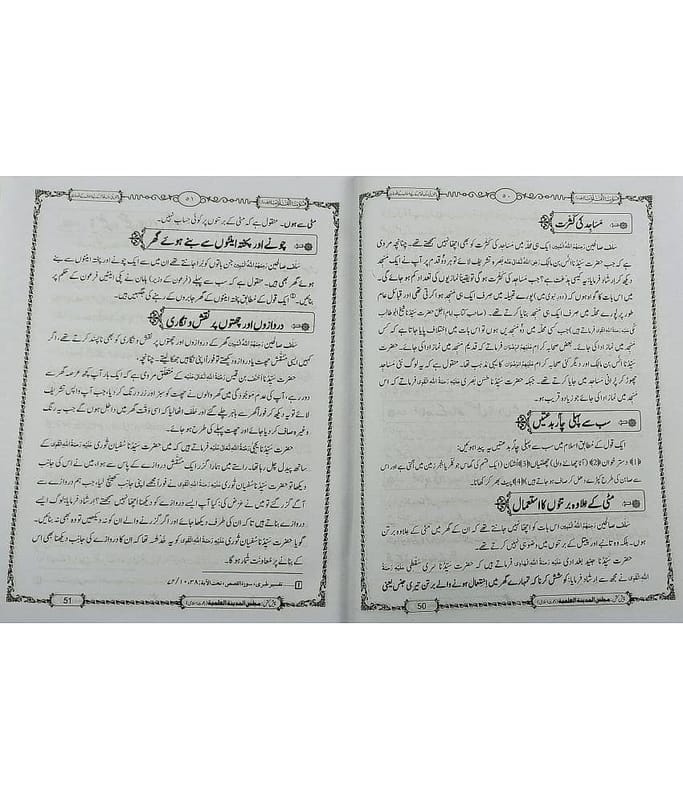 ۵۰
مَسَاجد کی کثرت
سلف صالحین رَحِمَهُمُ اللهُ المُبِین ایک ہی محلہ میں مساجد کی کثرت کو بھی اچھا نہیں سمجھتے تھے۔ چنانچہ مروی
ہے کہ جب حضرت سیِّدُنا انس بن مالک بصرہ تشریف لائے تو ہر دو قدم پر آپ نے ایک مسجد
دیکھ کر ارشاد فرمایا: یہ کیسی بدعت ہے؟ جب مساجد کی کثرت ہو گی تو یقیناً نمازیوں کی تعداد کم ہو جائے گی۔
میں اس بات کا گواہ ہوں کہ (دورِ نبوی میں) پورے قبیلہ میں صرف ایک ہی مسجد ہوا کرتی تھی اور قبائل عام
طور پر پورے محلہ میں صرف ایک ہی مسجد بنایا کرتے تھے۔ (صاحبِ کتاب امامِ اجل حضرت سیِّدُنا شیخ ابو طالب
مکی فرماتے ہیں) جب کسی محلہ میں دو مسجدیں ہوں تو اس بات میں اختلاف پایا جاتا ہے کہ کس
میں نماز ادا کی جائے۔ بعض صحابہ کرام فرماتے ہیں کہ قدیم مسجد میں نماز ادا کی جائے۔ حضرت
سیِّدُنا انس بن مالک اور دیگر کئی صحابہ کرام کا یہی مذہب تھا۔ منقول ہے کہ یہ لوگ نئی مساجد
چھوڑ کر پرانی مساجد میں جایا کرتے تھے۔ جبکہ حضرت سیِّدُنا حسن بصری فرماتے تھے کہ اس
مسجد میں نماز ادا کی جائے جو زیادہ قریب ہو۔
سب سے پہلی چار بدعتیں
ایک قول کے مطابق اسلام میں سب سے پہلی چار بدعتیں یہ پیدا ہوئیں:
﴿1﴾ دستر خوان ﴿2﴾ (آٹا چھاننے والی) چھلنیاں ﴿3﴾ اُشنان (ایک قسم کی گھاس جو بنجر زمین میں اُگتی ہے اور اس
سے صابن کی طرح کپڑے دھل کر صاف ہو جاتے ہیں) ﴿4﴾ پیٹ بھر کر کھانا۔
مٹی کے علاوہ برتنوں کا استعمال
سلف صالحین رَحِمَهُمُ اللهُ المُبِین اس بات کو بھی اچھا نہیں جانتے تھے کہ ان کے گھر میں مٹی کے علاوہ برتن
ہوں۔ بلکہ وہ تانبے اور پیتل کے برتنوں میں وضو بھی نہیں کرتے تھے۔
حضرت سیِّدُنا جنید بغدادی فرماتے ہیں کہ حضرت سیِّدُنا سری سقطی
نے مجھ سے ارشاد فرمایا: کوشش کرنا کہ تمہارے گھر میں استعمال ہونے والے برتن تیری جنس یعنی
مجلس المدینۃ العلمیۃ
50
۵۱
مٹی سے ہوں۔ منقول ہے کہ مٹی کے برتنوں پر کوئی حساب نہیں۔
چونے اور پختہ اینٹوں سے بنے ہوئے گھر
سلف صالحین رَحِمَهُمُ اللهُ المُبِین جن باتوں کو برا جانتے تھے ان میں سے ایک چونے اور پختہ اینٹوں سے بنے
ہوئے گھر بھی ہیں۔ منقول ہے کہ سب سے پہلے (فرعون کے وزیر) ہامان نے پکی اینٹیں فرعون کے حکم پر
بنائیں۔ ایک قول کے مطابق پختہ اینٹوں کے گھر جابروں کے رہنے کی جگہیں ہیں۔
دروازوں اور چھتوں پر نقش و نگاری
سلف صالحین رَحِمَهُمُ اللهُ المُبِین گھر کے دروازوں اور چھتوں پر نقش و نگاری کو بھی ناپسند کرتے تھے، اگر
کہیں ایسی منقّش چھت یا دروازہ دیکھتے تو فوراً اپنی نگاہیں جھکا لیتے۔ چنانچہ،
حضرت سیِّدُنا احنف بن قیس کے متعلق مروی ہے کہ ایک بار آپ کچھ عرصہ گھر سے
دور رہے، آپ کی عدم موجودگی میں گھر والوں نے چھت کو سبز اور زرد رنگ کر دیا، جب آپ واپس تشریف
لائے تو یہ دیکھ کر فوراً گھر سے باہر چلے گئے اور حلف اٹھا لیا کہ اس وقت گھر میں داخل ہوں گے جب یہ رنگ
وغیرہ صاف کر دیا جائے اور چھت پہلے کی طرح ہو جائے۔
حضرت سیِّدُنا یحییٰ فرماتے ہیں کہ میں حضرت سیِّدُنا سُفیان ثوری کے
ساتھ پیدل چل رہا تھا۔ راستے میں ہمارا گزر ایک منقّش دروازے کے پاس سے ہوا، میں نے اس کی جانب
دیکھا تو حضرت سیِّدُنا سُفیان ثوری نے فوراً مجھے اپنی جانب کھینچ لیا، جب ہم دروازے سے
آگے گزر گئے تو میں نے عرض کی: کیا آپ ایسے دروازے کو دیکھنا اچھا نہیں سمجھتے؟ ارشاد فرمایا: لوگ ایسے
دروازے بناتے ہیں تاکہ ان کی طرف دیکھا جائے اور اگر گزرنے والے ان کو نہ دیکھیں تو وہ بھی نہ بنائیں۔
گویا حضرت سیِّدُنا سُفیان ثوری کو یہ خدشہ تھا کہ ان کا دروازے کی جانب دیکھنا بھی اس
کے بنانے پر معاونت شمار ہو گا۔
تفسیر طبری، سورۃ القصص، تحت الآیۃ: ۳۸
مجلس المدینۃ العلمیۃ
51